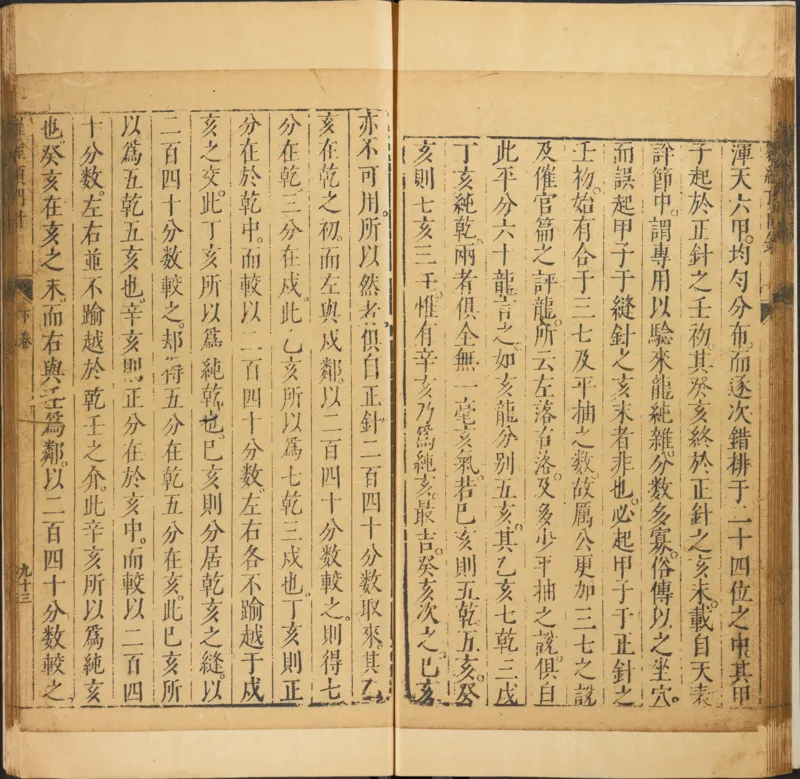 渾天六甲均勻分布而逐次錯排于二十四位之中其甲
子起於正針之壬初其癸亥終於正針之亥末載自天表
詳節中謂專用以驗來龍純雜分數多寡俗傳以之坐穴
而誤起甲子于縫針之亥末者非也必起甲子于正針之
壬初始有合于三七及平抽之數故厲公更加三七之說
及催官篇之評龍所云左落右落及多少平抽之說俱自
此平分六十龍言之如亥龍分別五亥其乙亥七乾三戌
丁亥純乾兩者俱全無一毫亥氣若巳亥則五乾五亥癸
亥則七亥三壬惟有辛亥乃為純亥最吉癸亥次之巳亥
亦不可用所以然者俱自正針二百四十分數取來其乙
亥在乾之初而左與戌鄰以二百四十分數較之則得七
分在乾三分在戌此乙亥所以為七乾三戌也丁亥則正
分在於乾中而較以二百四十分數左右各不踰越于戌
亥之交此丁亥所以為純乾也巳亥則分居乾亥之縫以
二百四十分數較之却得五分在乾五分在亥此巳亥所
以為五乾五亥也辛亥則正分在於亥中而較以二百四
十分數左右並不踰越於乾壬之介此辛亥所以為純亥
也癸亥在亥之末而右與壬為鄰以二百四十分數較之
下卷
九十三